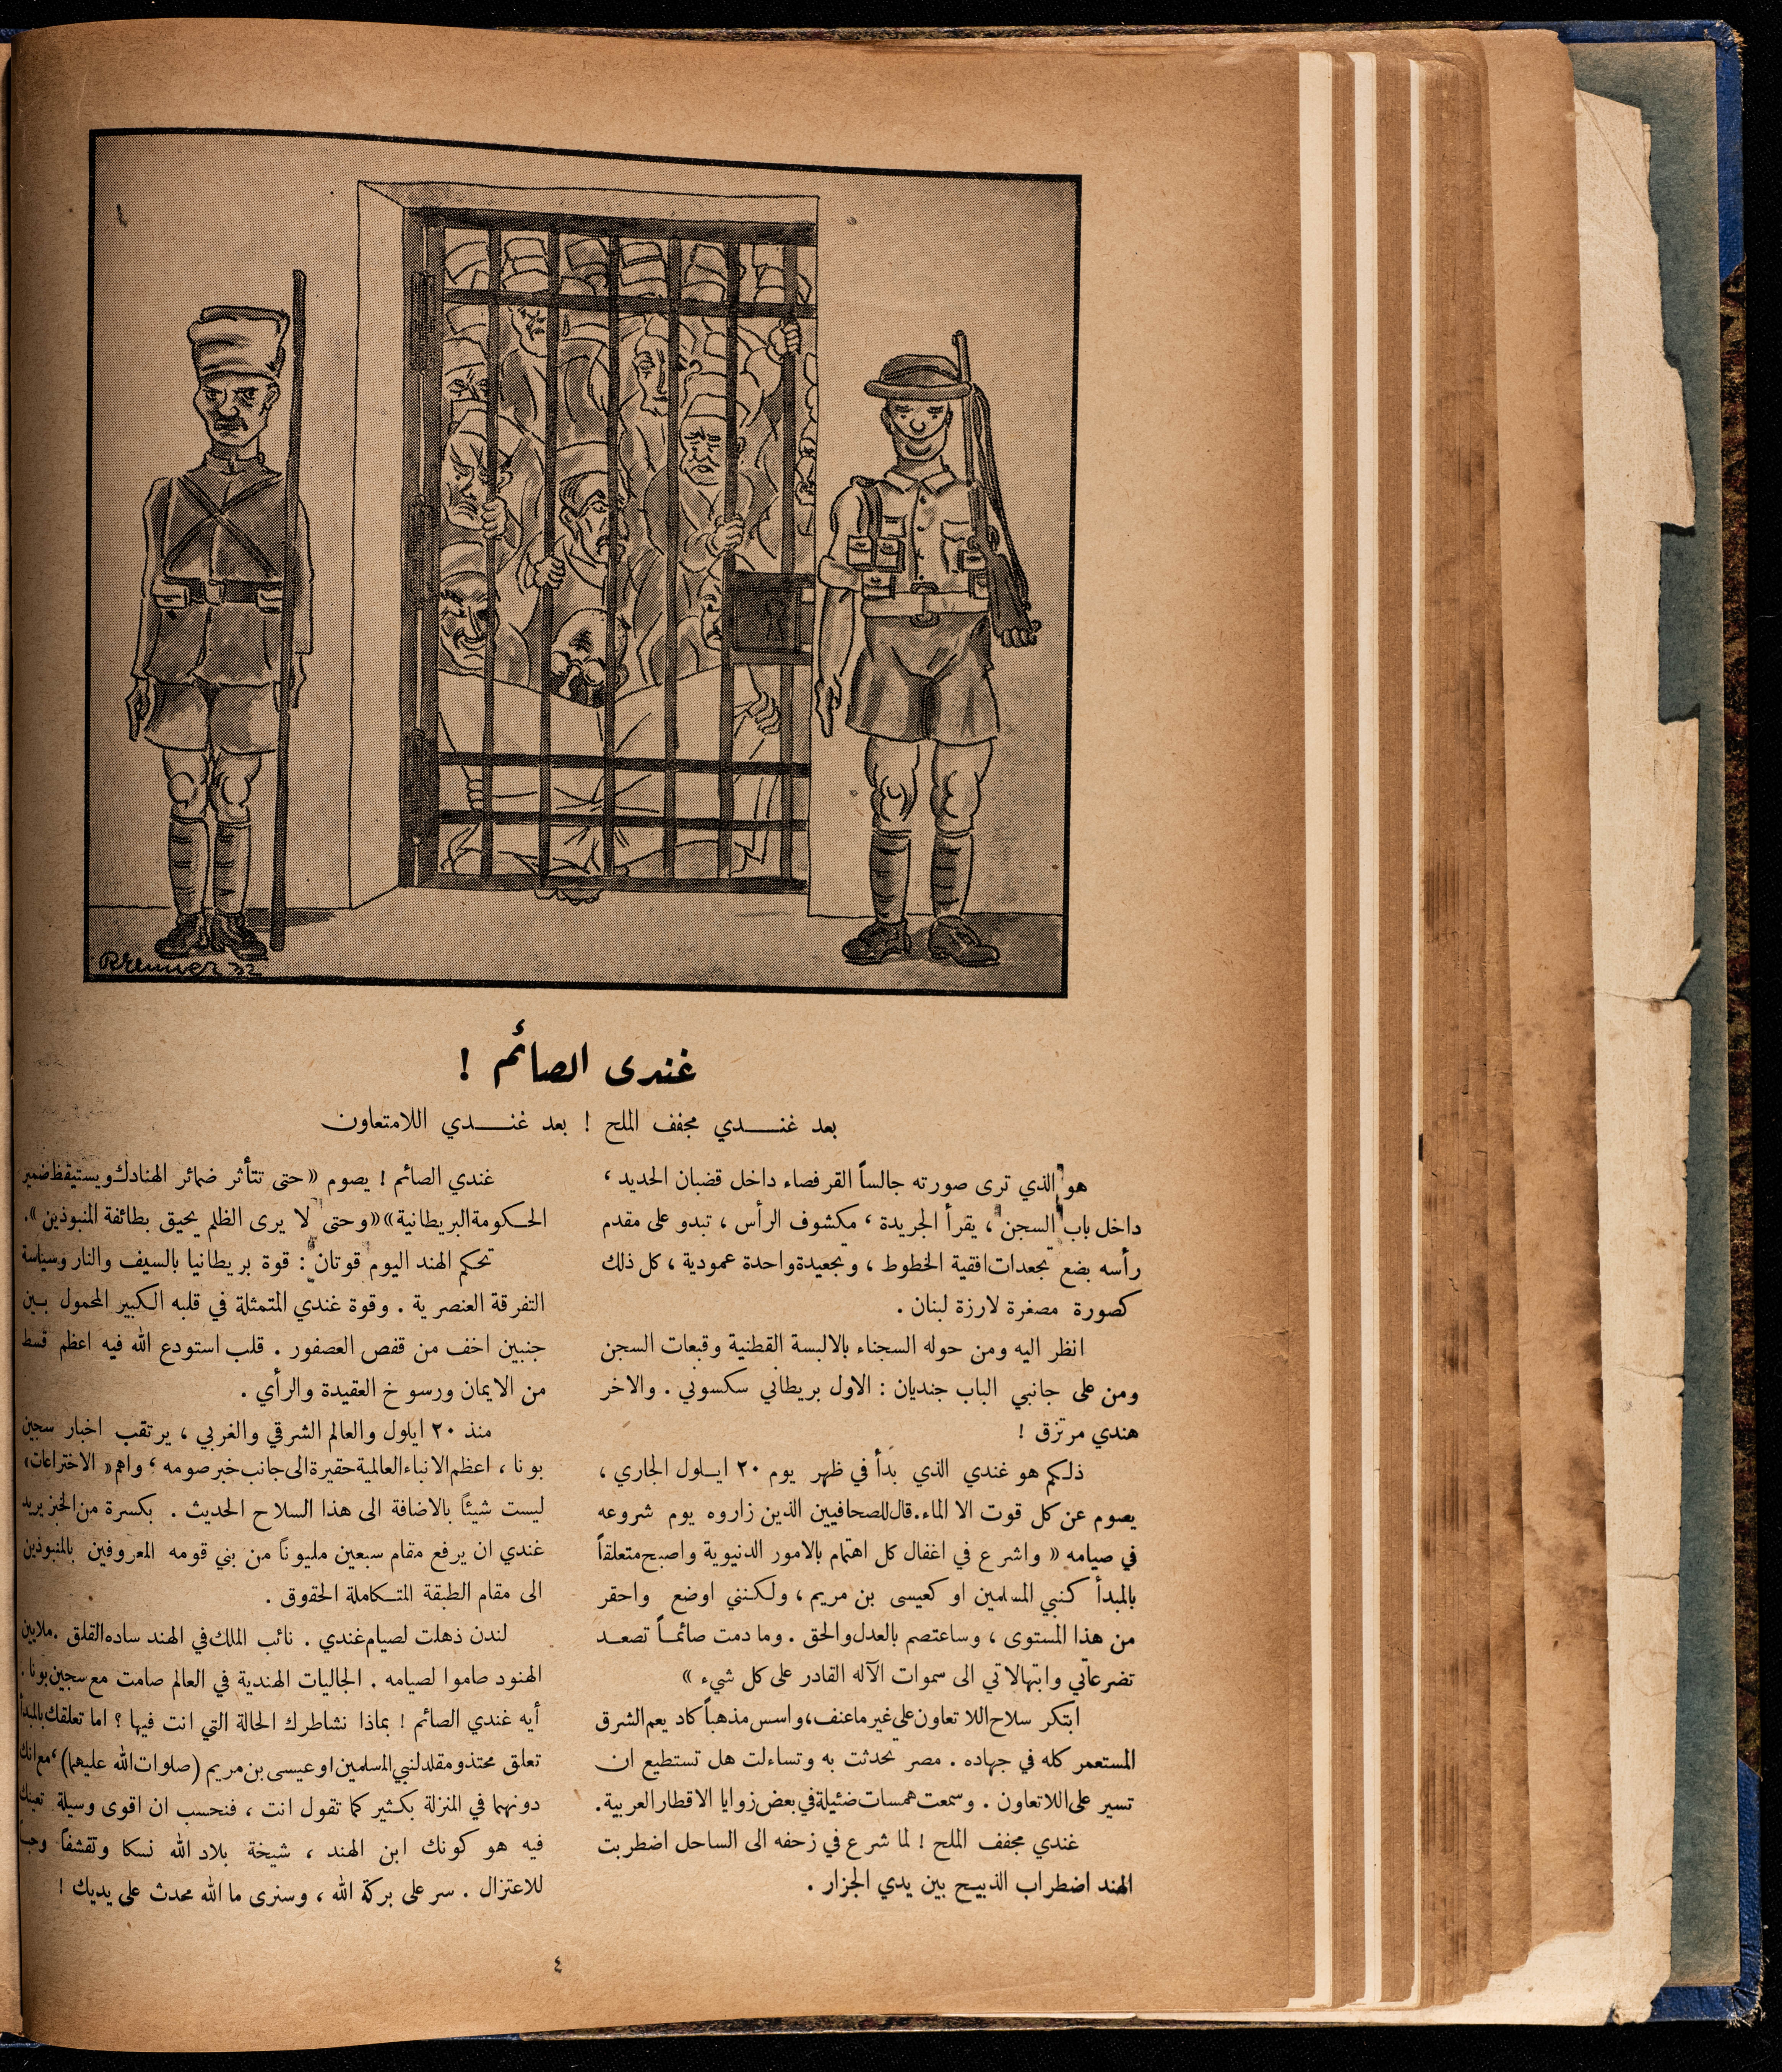 Rrenner 32
غندى الصائم !
بعد غندي مجفف الملح ! بعد غندي اللامتعاون
هو الذي ترى صورته جالساً القرفصاء داخل قضبان الحديد ،
داخل باب السجن ، يقرأ الجريدة ، مكشوف الرأس ، تبدو على مقدم
رأسه بضع تجعدات افقية الخطوط ، وتجعيدة واحدة عمودية ، كل ذلك
كصورة مصغرة لارزة لبنان .
انظر اليه ومن حوله السجناء بالالبسة القطنية وقبعات السجن
ومن على جانبي الباب جنديان : الاول بريطاني سكسوني . والاخر
هندي مرتزق !
ذلكم هو غندي الذي بدأ في ظهر يوم ٢٠ ايلول الجاري ،
يصوم عن كل قوت الا الماء . قال للصحافيين الذين زاروه يوم شروعه
في صيامه « واشرع في اغفال كل اهتمام بالامور الدنيوية واصبح متعلقاً
بالمبدأ كنبي المسلمين او كعيسى بن مريم ، ولكنني اوضع واحقر
من هذا المستوى ، وساعتصم بالعدل والحق . وما دمت صائمـاً تصعد
تضرعاتي وابتهالاتي الى سموات الآله القادر على كل شيء »
ابتكر سلاح اللا تعاون على غير ما عنف ، واسس مذهباً كاد يعم الشرق
المستعمر كله في جهاده . مصر تحدثت به وتساءلت هل تستطيع ان
تسير على اللاتعاون . وسمعت همسات ضئيلة في بعض زوايا الاقطار العربية .
غندي مجفف الملح ! لما شرع في زحفه الى الساحل اضطربت
الهند اضطراب الذبيح بين يدي الجزار .
غندي الصائم ! يصوم « حتى تتأثر ضمائر الهنادك ويستيقظ ضمير
الحكومة البريطانية » « وحتى لا يرى الظلم يحيق بطائفة المنبوذين » .
تحكم الهند اليوم قوتان : قوة بريطانيا بالسيف والنار وسياسة
التفرقة العنصرية . وقوة غندي المتمثلة في قلبه الكبير المحمول بين
جنبين اخف من قفص العصفور . قلب استودع الله فيه اعظم قسط
من الايمان ورسوخ العقيدة والرأي .
منذ ٢٠ ايلول والعالم الشرقي والغربي ، يرتقب اخبار سجين
بونا ، اعظم الانباء العالمية حقيرة الى جانب خبر صومه ، واهم « الاختراعات »
ليست شيئاً بالاضافة الى هذا السلاح الحديث . بكسرة من الخبز يريد
غندي ان يرفع مقام سبعين مليوناً من بني قومه المعروفين بالمنبوذين
الى مقام الطبقة المتكاملة الحقوق .
لندن ذهلت لصيام غندي . نائب الملك في الهند ساده القلق . ملايين
الهنود صاموا لصيامه . الجاليات الهندية في العالم صامت مع سجين بونا .
أيه غندي الصائم ! بماذا نشاطرك الحالة التي انت فيها ؟ اما تعلقك بالمبدأ
تعلق محتذ ومقلد لنبي المسلمين او عيسى بن مريم (صلوات الله عليهما) ، مع انك
دونهما في المنزلة بكثير كما تقول انت ، فنحسب ان اقوى وسيلة تعينك
فيه هو كونك ابن الهند ، شيخة بلاد الله نسكا وتقشفاً وحب
للاعتزال . سر على بركة الله ، وسنرى ما الله محدث على يديك !
٤